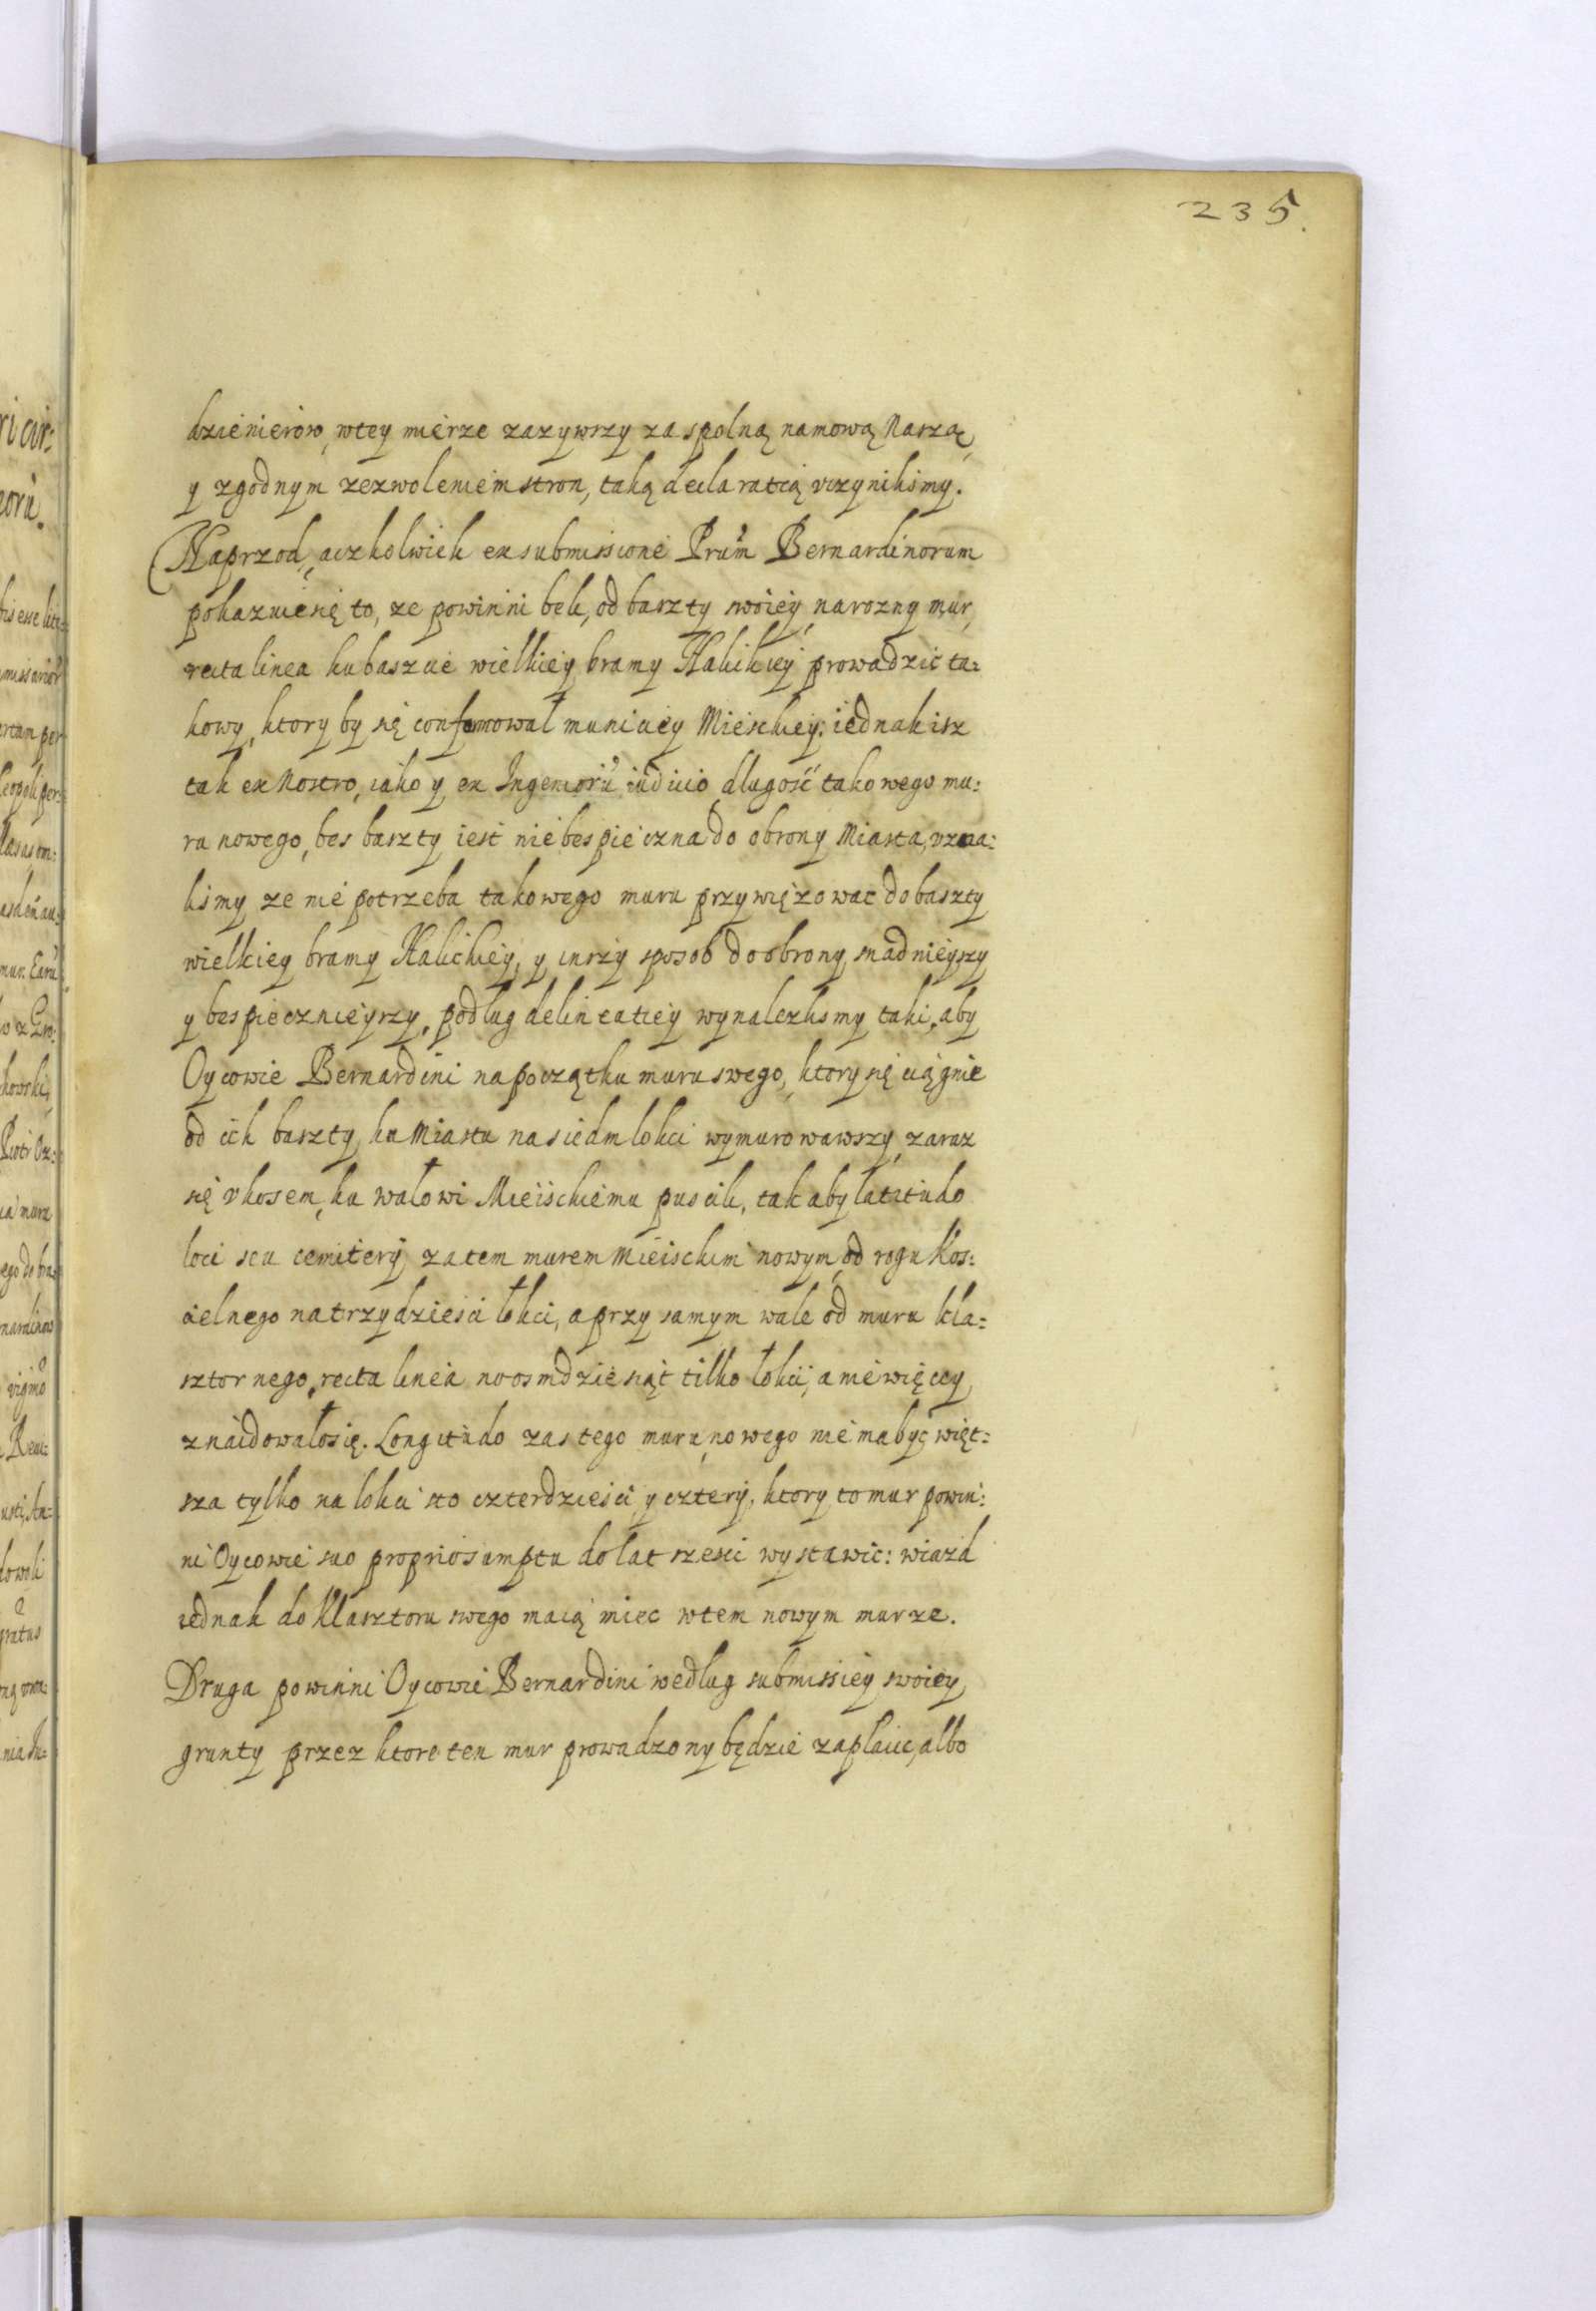 235.
dzienierow, wtey mierze zazywszy za spolną namową Naszą,
y zgodnym zezwoleniem stron, taką declaratią vczynilismy.
Naprzod, aczkolwiek ex submissione Prum Bernardinorum
pokazuie się to, ze powinni beli, od baszty swoiey, narozny mur,
recta linea ku baszcie wielkiey bramy Halickiey prowadzić ta:
kowy, ktory by się conformował municiey Mieiskiey: iednak isz
tak ex Nostro, iako y ex Ingeniorũ iudicio, dlugość takowego mu:
ru nowego, bes baszty iest niebespieczna do obrony Miasta, vzna:
lismy ze nie potrzeba takowego muru przywięzowac do baszty
wielkiey bramy Halickiey, y inszy sposob do obrony snadnieyszy
y bespiecznieyszy, podlug delineatiey wynalezlismy taki, aby
Oycowie Bernardini na początku muru swego, ktory się ciągnie
od ich baszty, ku Miastu na siedm lokci wymurowawszy, zaraz
się vkosem, ku wałowi Mieiskiemu puscili, tak aby latitudo
loci seu cemiterij za tem murem Mieiskim nowym, od rogu Kos:
cielnego na trzydziesci łokci, a przy samym wale od muru kla:
sztornego, recta linea na osmdziesiąt tilko łokci, a niewięcey
znaidowało się. Longitudo zas tego muru, nowego nie ma być więt:
sza tylko na lokci sto czterdziesci y cztery, ktory to mur powin:
ni Oycowie suo proprio sumptu do lat szesci wystawic: wiazd
iednak do Klasztoru swego maią miec wtem nowym murze.
Druga powinni Oycowie Bernardini według submissiey swoiey
grunty przez ktore ten mur prowadzony będzie zaplacic, albo